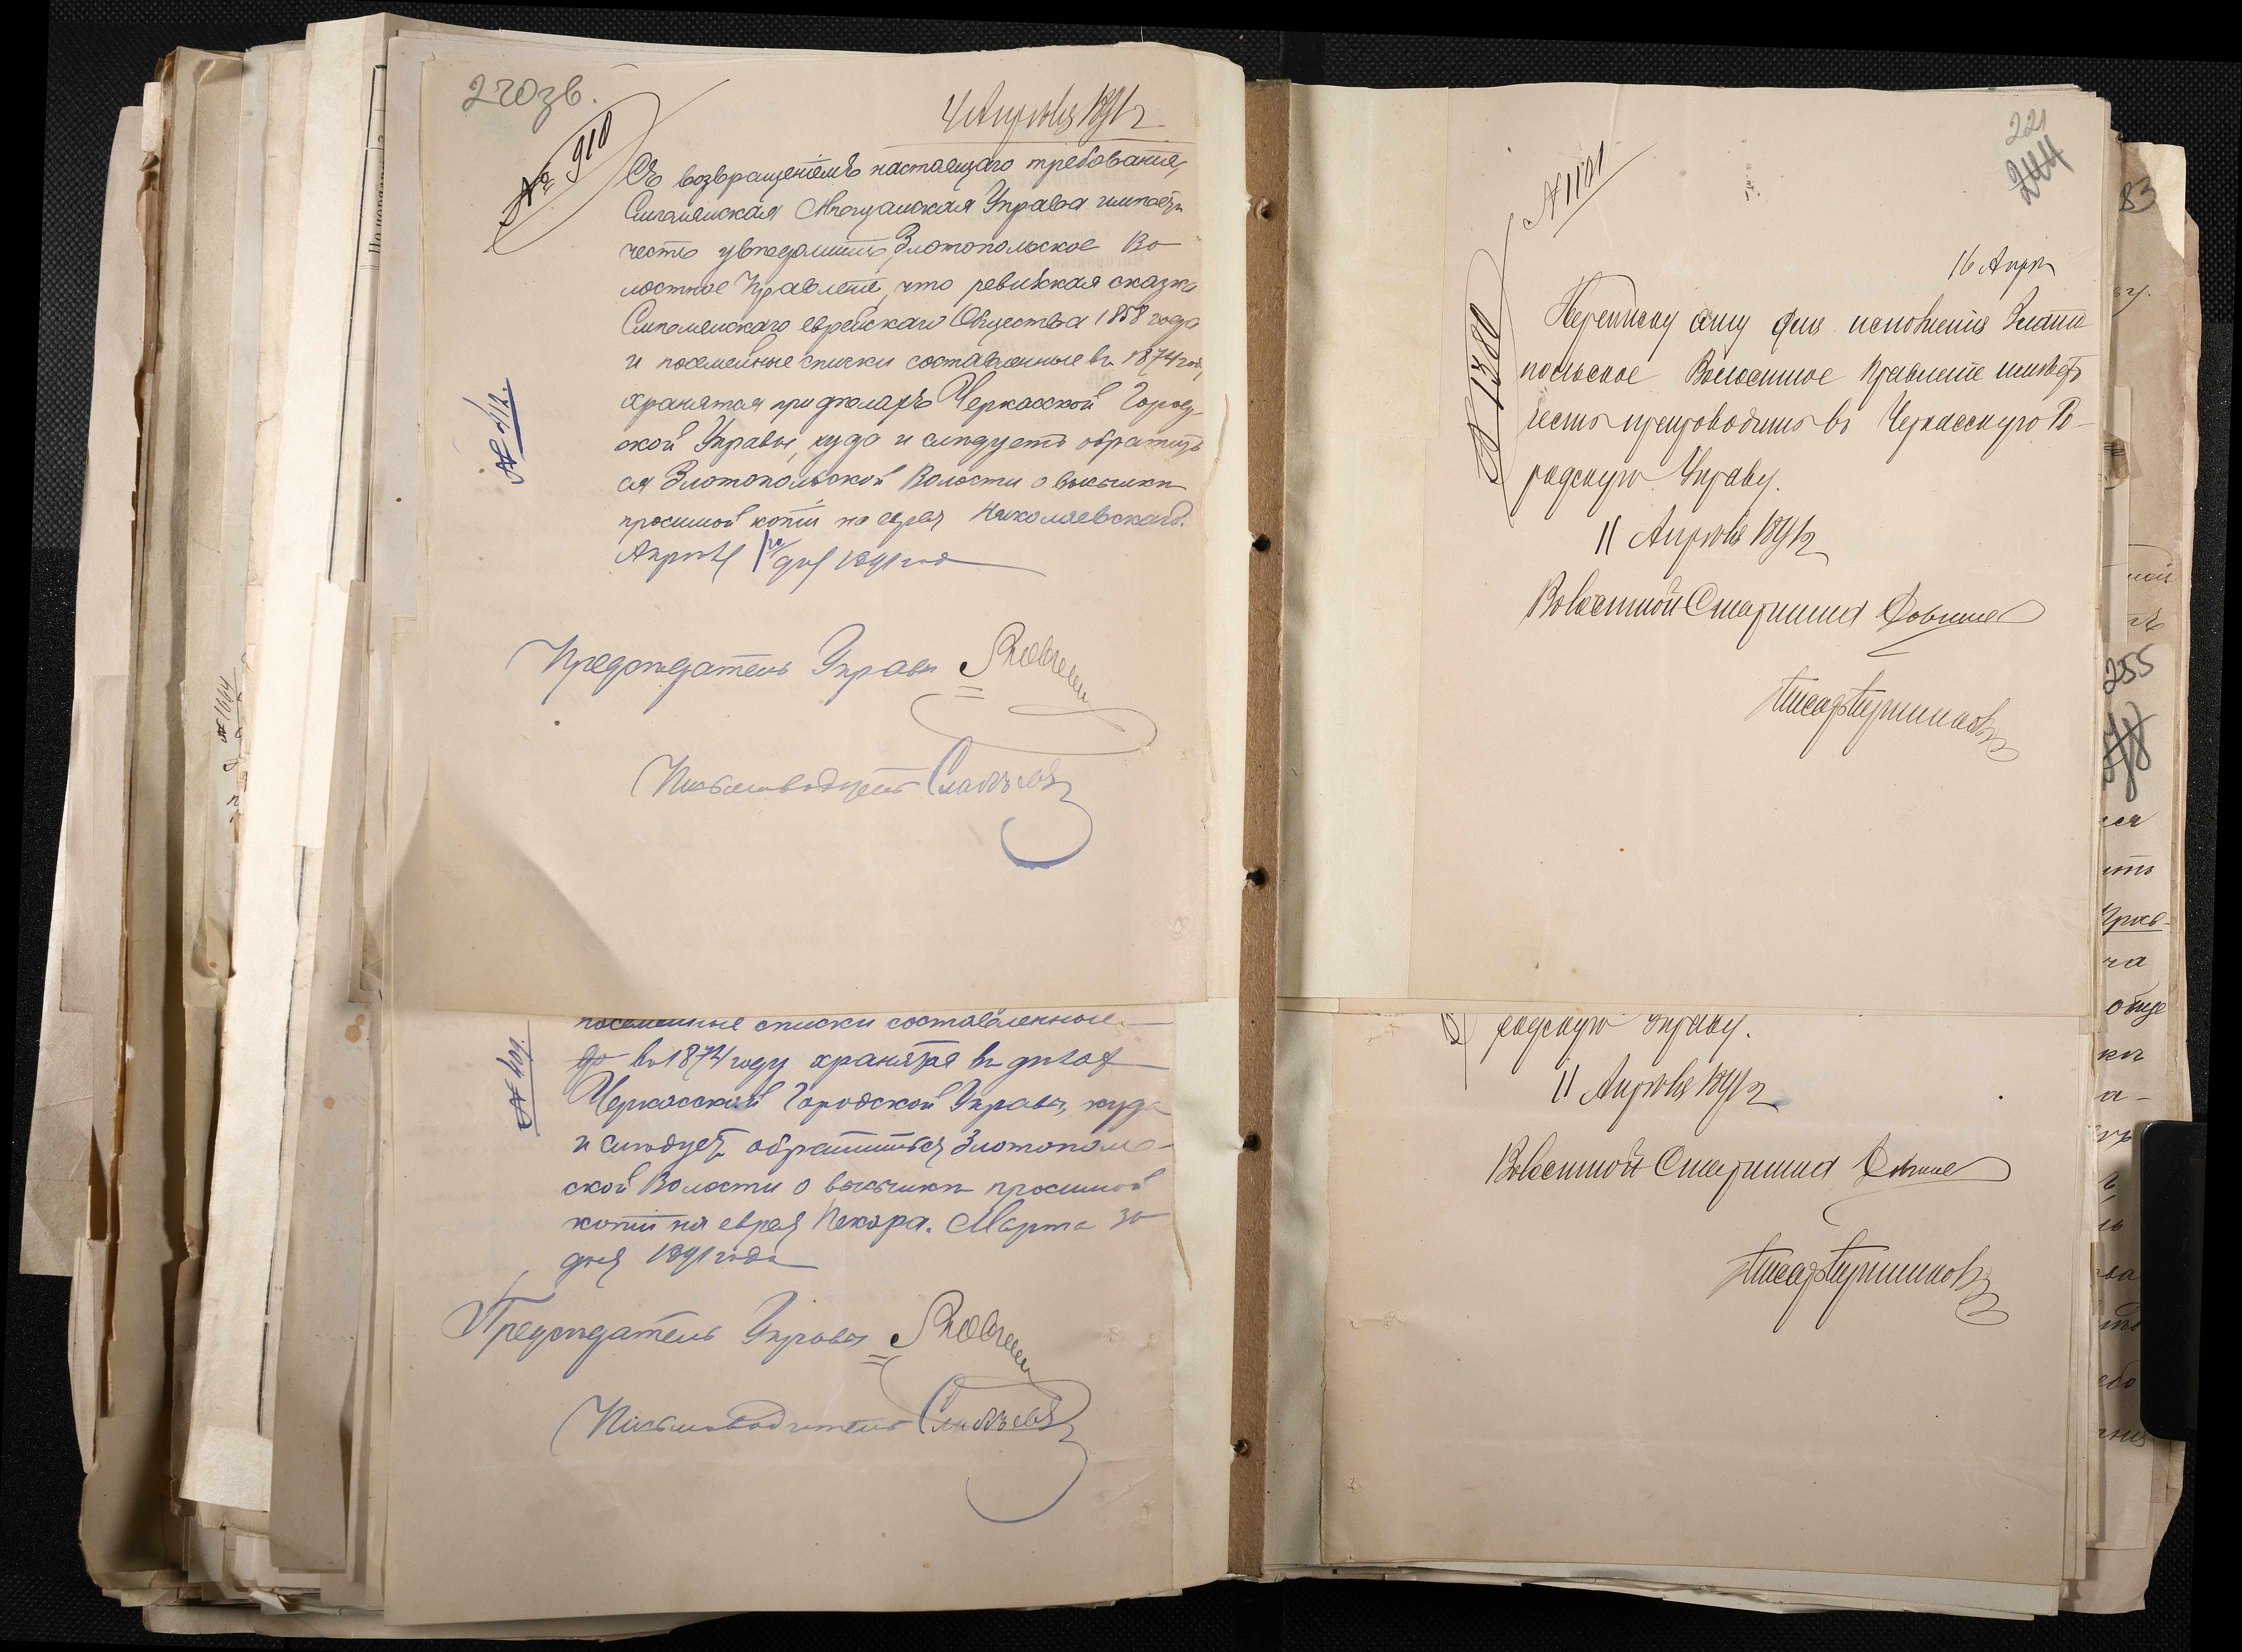 220 зв.
4 Апрѣля 1891 г.
№ 910
Съ возвращеніемъ настоящаго требованія,
Смѣлянская Мѣщанская Управа имѣетъ
честь увѣдомить Злотопольское Во-
лостное Правленіе, что ревизская сказка
Смѣлянскаго еврейскаго Общества 1858 года
и посемейные списки составленные въ 1874 год.
хранятся при дѣлахъ Черкасской Город-
ской Управы, куда и слѣдуетъ обратить-
ся Злотопольской Волости о высылкѣ
просимой копіи на еврея Николаевскаго.
Апрѣля 1го дня 1891 года
№ 412.
Предсѣдатель Управы
Письмоводитель
посемейные списки составленные
въ 1874 году хранятся въ дѣлах
Черкасской Городской Управы, куда
и слѣдуетъ обратиться Злотополь-
ской Волости о высылкѣ просимой
копіи на еврея Пекаря. Марта 30
дня 1891 года
№ 409.
Предсѣдатель Управы
Письмоводитель
221
244
№ 1101
16 Апрѣ
№ 1380
Переписку сію для исполненія Злато-
польское Волостное Правленіе имѣетъ
честь препроводить въ Черкасскую Го-
родскую Управу.
11 Апрѣля 1891 г.
Волостной Старшина
Писарь
родскую Управу.
11 Апрѣля 1891 г.
Волостной Старшина
Писарь
83
255
№ 1664